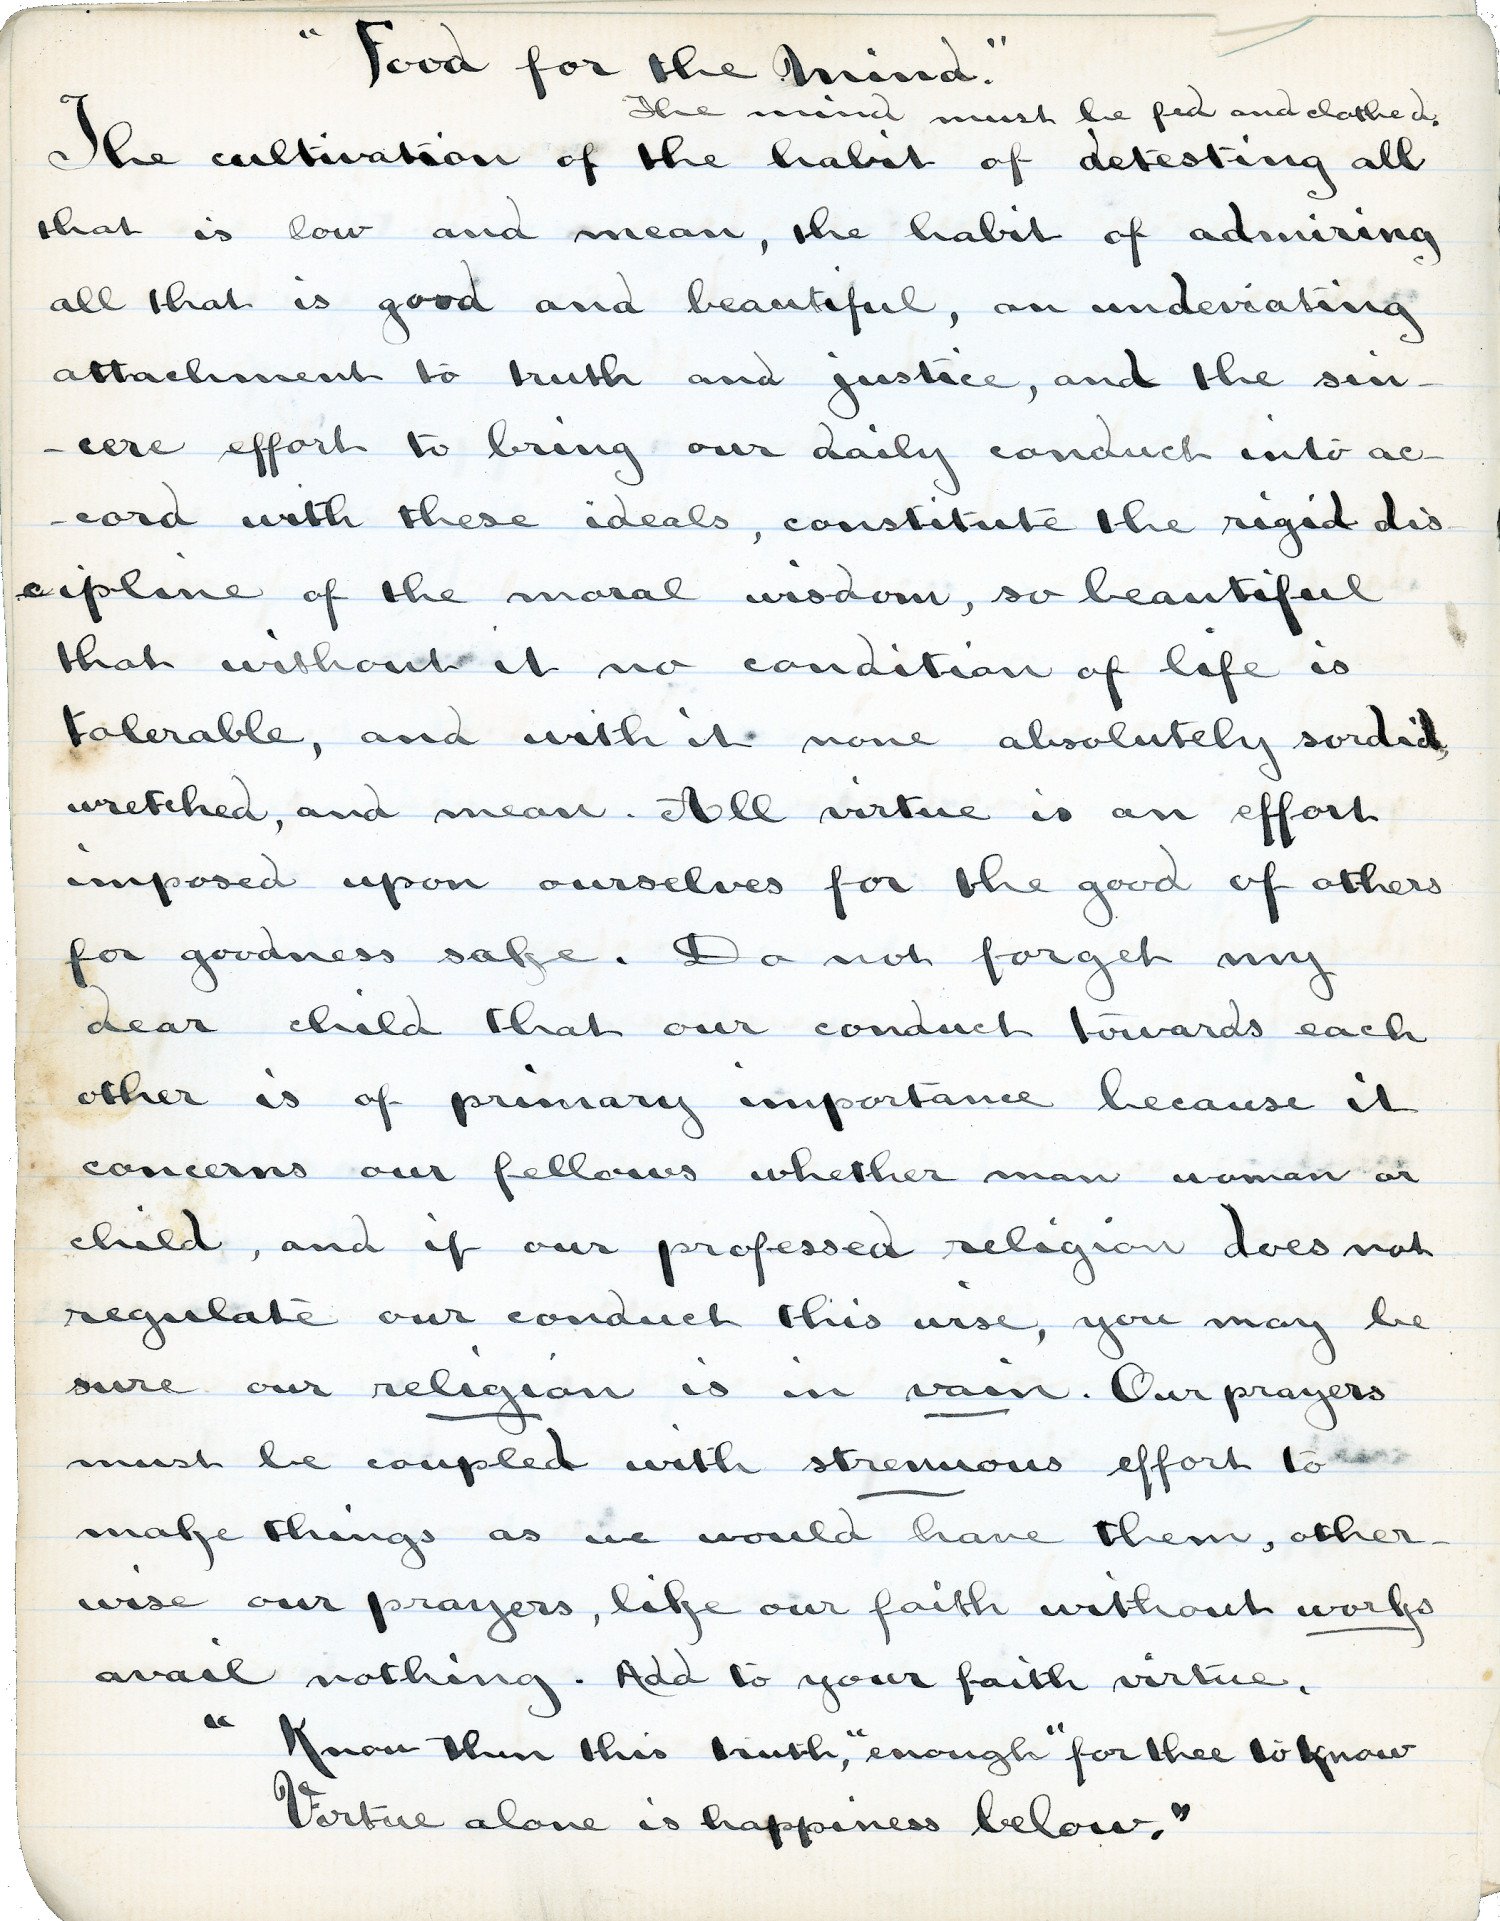 "Food for the Mind."
The mind must be fed and clothed.
The cultivation of the habit of detesting all
that is low and mean, the habit of admiring
all that is good and beautiful, an undeviating
attachment to truth and justice, and the sin-
-cere effort to bring our daily conduct into ac-
-cord with these ideals, constitute the rigid dis-
cipline of the moral wisdom, so beautiful
that without it no condition of life is
tolerable, and with it none absolutely sordid,
wretched, and mean. All virtue is an effort
imposed upon ourselves for the good of others
for goodness sake. Do not forget my
dear child that our conduct towards each
other is of primary importance because it
concerns our fellows whether man woman or
child, and if our professed religion does not
regulate our conduct this wise, you may be
sure our religion is in vain. Our prayers
must be coupled with strenuous effort to
make things as we would have them, other-
wise our prayers, like our faith without works
avail nothing. Add to your faith virtue.
"Know then this truth, "enough" for thee to know
Virtue alone is happiness below."